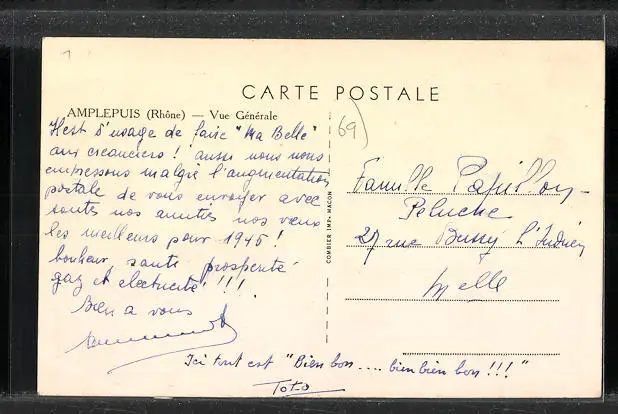 CARTE POSTALE
AMPLEPUIS (Rhône) — Vue Générale
69)
Il est d'usage de faire "Ma Belle"
aux creanciers ! aussi nous nous
empressons malgré l'augmentation
postale de vous envoyer avec
toutes nos amities nos vœux
les meilleurs pour 1946 !
bonheur, santé prosperité
gaz et electricité !!!
Bien a vous
Ici tout est "Bien bon .... bien bien bon !!!"
Toto
COMBIER IMP. MACON
Famille Papillon-
Peluche
27 rue Bussy L'Indien
Melle